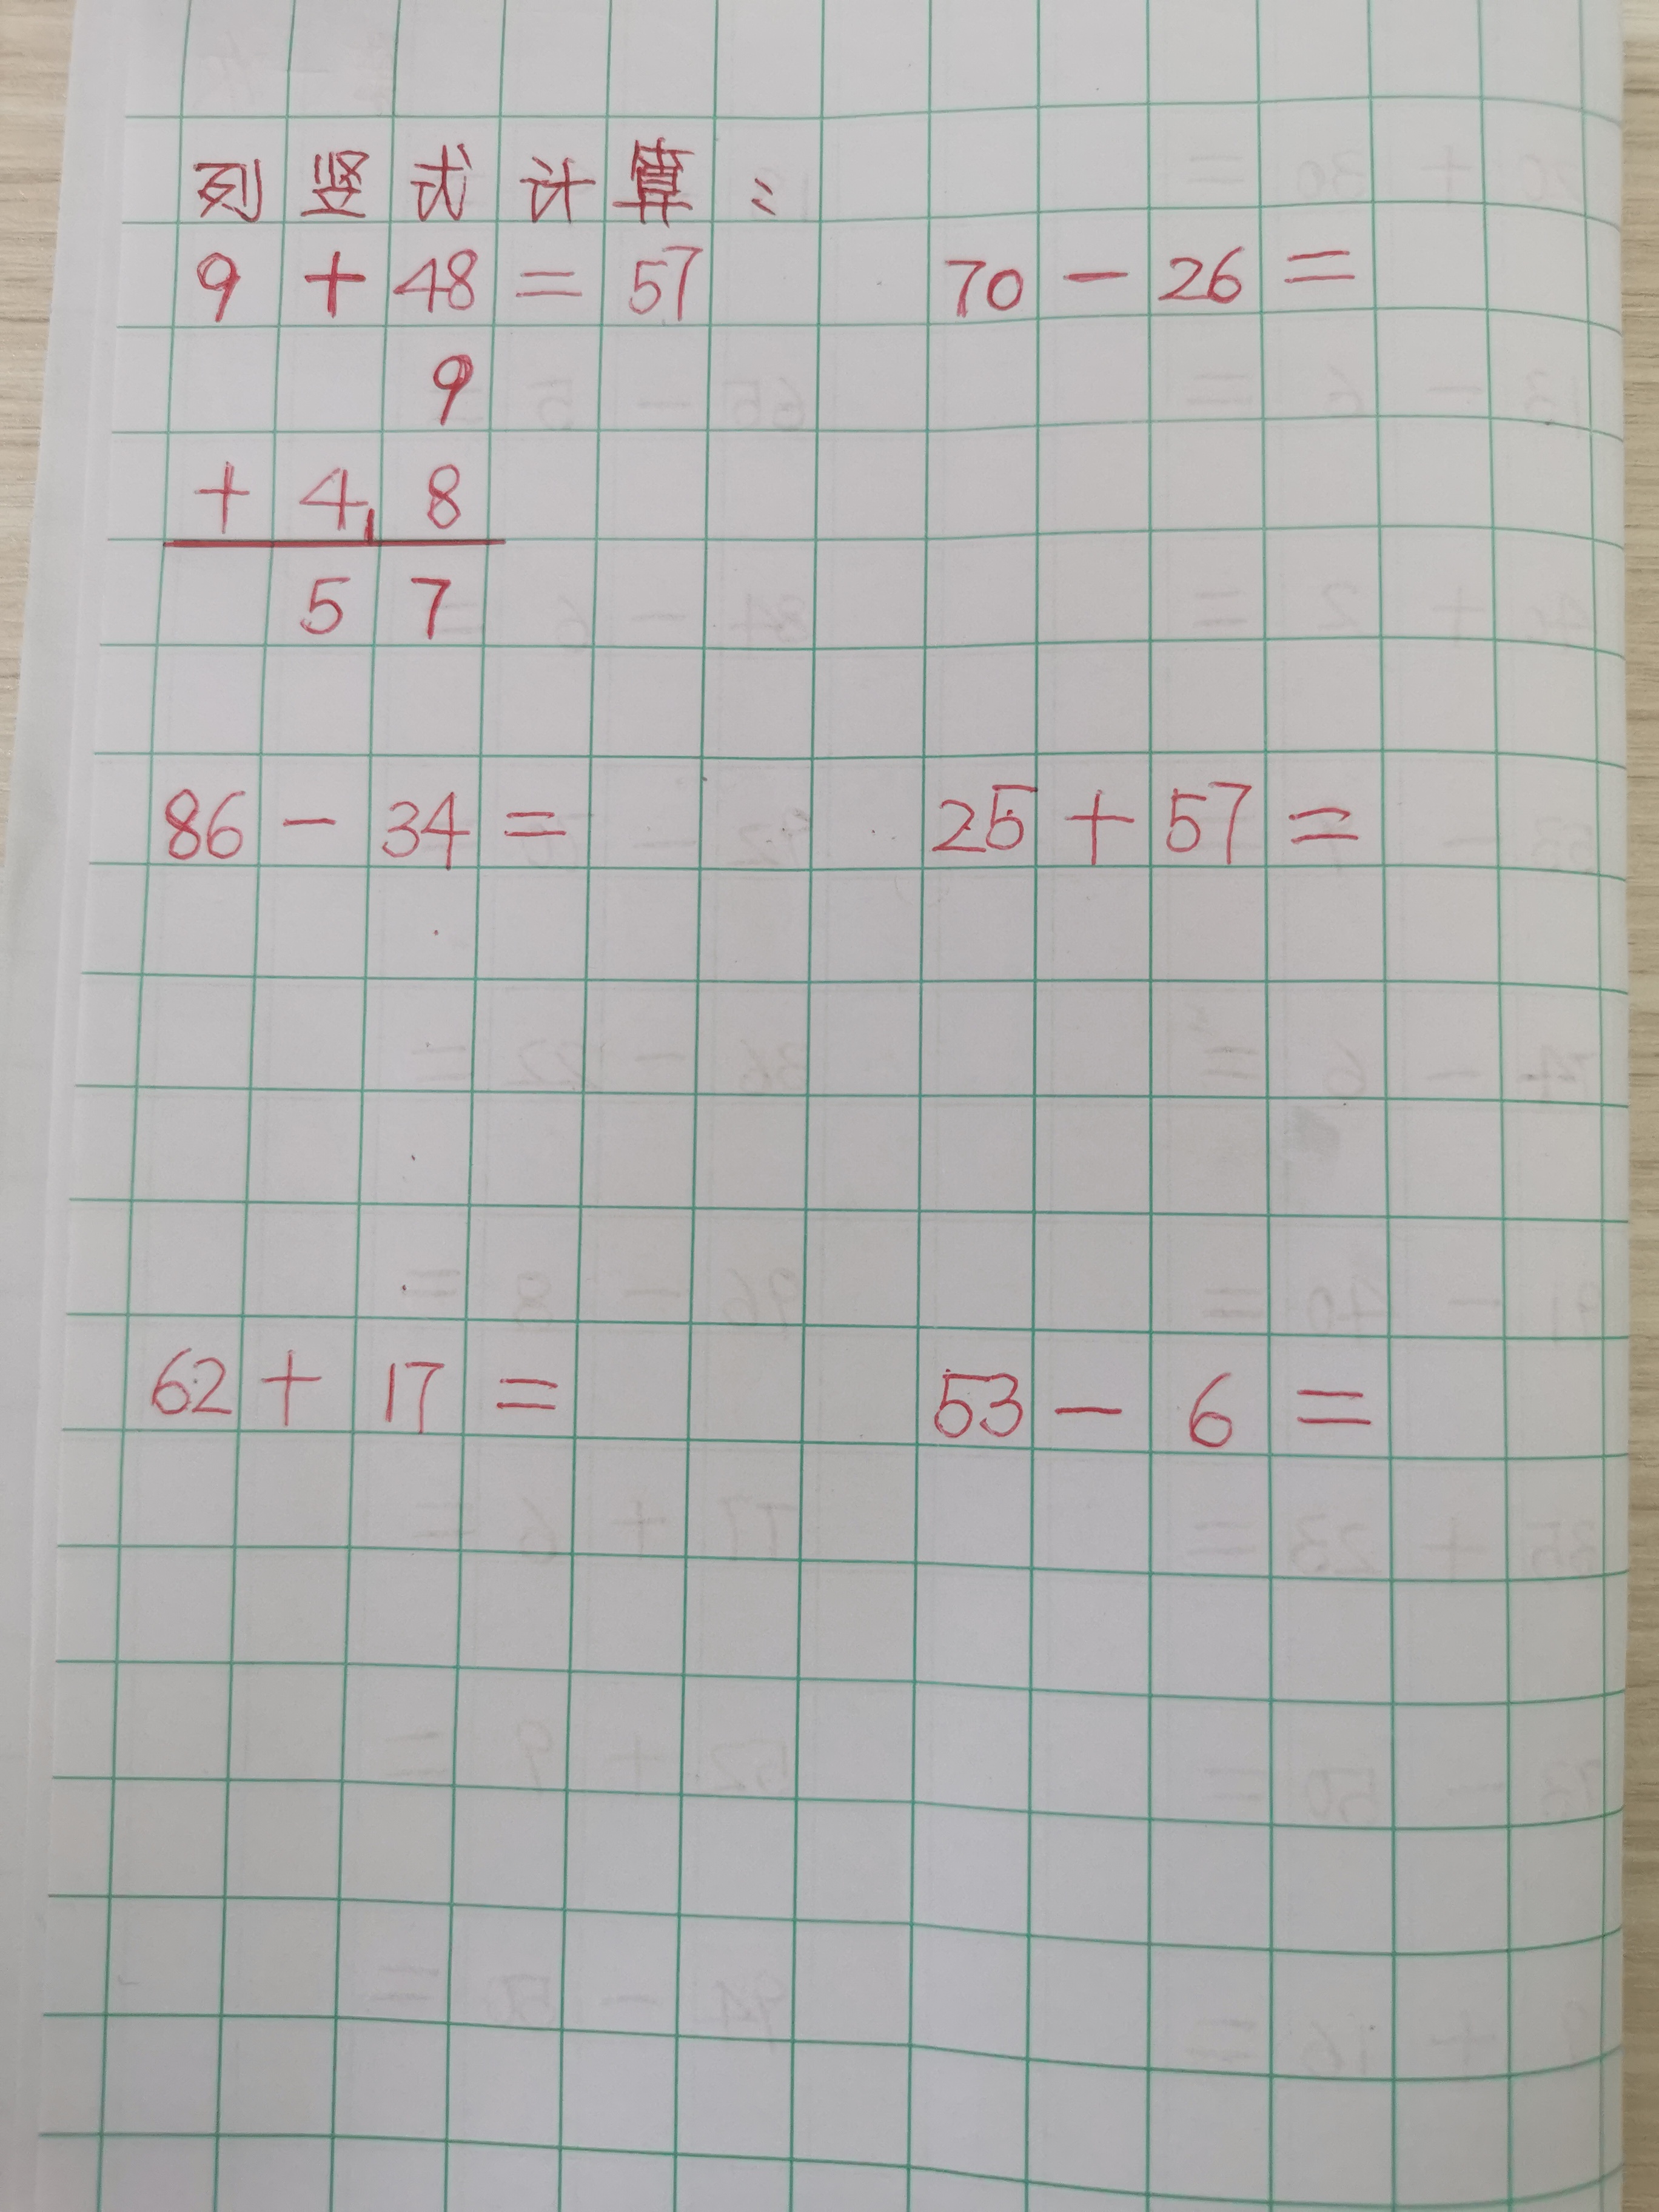 列竖式计算：
9 + 48 = 57 70 - 26 =
9
+ 4 1 8
5 7
86 - 34 = 25 + 57 =
62 + 17 = 53 - 6 =